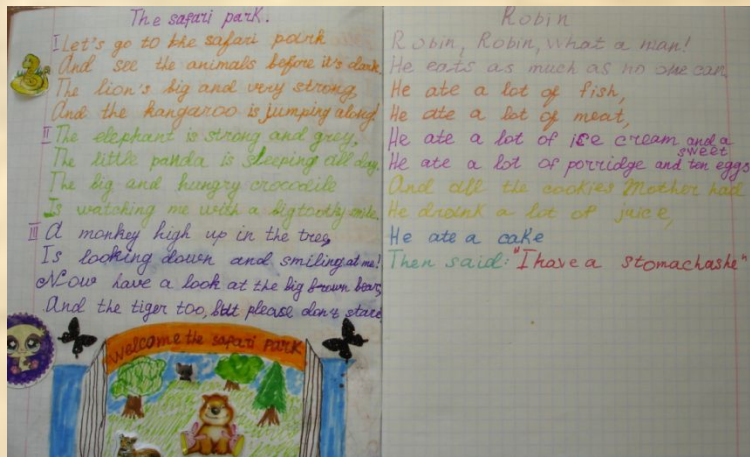 The safari park.
I Let's go to the safari park
And see the animals before it's dark
The lion's big and very strong,
And the kangaroo is jumping along!
II The elephant is strong and grey,
The little panda is sleeping all day.
The big and hungry crocodile
Is watching me with a big toothy smile.
III A monkey high up in the tree,
Is looking down and smiling at me!
Now have a look at the big brown bear,
And the tiger too, but please don't stare
Welcome the safari park
Robin
Robin, Robin, what a man!
He eats as much as no one can.
He ate a lot of fish,
He ate a lot of meat,
He ate a lot of ice cream and a sweet
He ate a lot of porridge and ten eggs
And all the cookies Mother had
He drank a lot of juice,
He ate a cake
Then said: "I have a stomachashe"